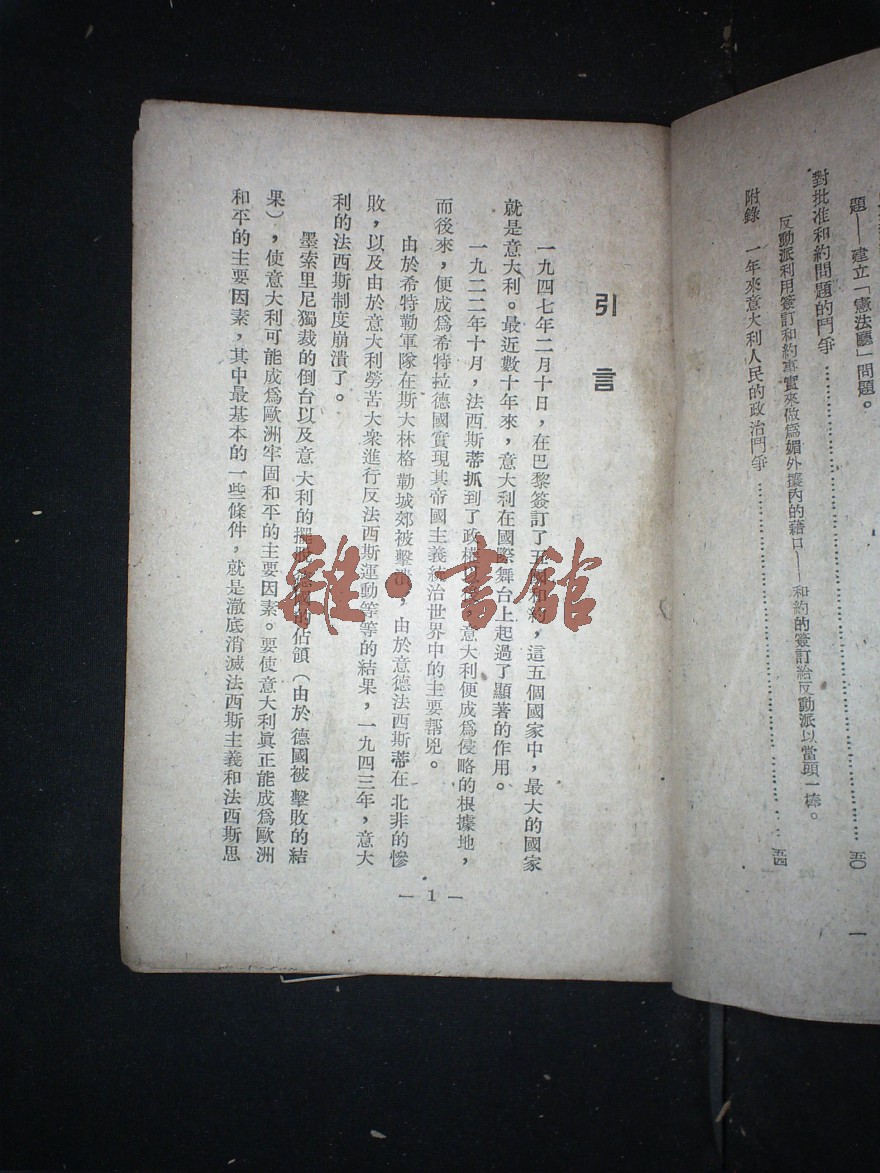 題——建立「憲法廳」問題。
對批准和約問題的鬥爭……………………………………五〇
反動派利用簽訂和約事實來做爲媚外攘內的藉口——和約的簽訂給反動派以當頭一棒。
附錄 一年來意大利人民的政治鬥爭……………………………………五四
一
引言
一九四七年二月十日，在巴黎簽訂了五國和約，這五個國家中，最大的國家
就是意大利。最近數十年來，意大利在國際舞台上起過了顯著的作用。
一九二二年十月，法西斯蒂抓到了政權　　意大利便成爲侵略的根據地，
而後來，便成爲希特拉德國實現其帝國主義統治世界中的主要幫兇。
由於希特勒軍隊在斯大林格勒城郊被擊　，由於意德法西斯蒂在北非的慘
敗，以及由於意大利勞苦大衆進行反法西斯運動等等的結果，一九四三年，意大
利的法西斯制度崩潰了。
墨索里尼獨裁的倒台以及意大利的擺脫　　的佔領（由於德國被擊敗的結
果），使意大利可能成爲歐洲牢固和平的主要因素。要使意大利眞正能成爲歐洲
和平的主要因素，其中最基本的一些條件，就是澈底消滅法西斯主義和法西斯思
— 1 —
雜·書館